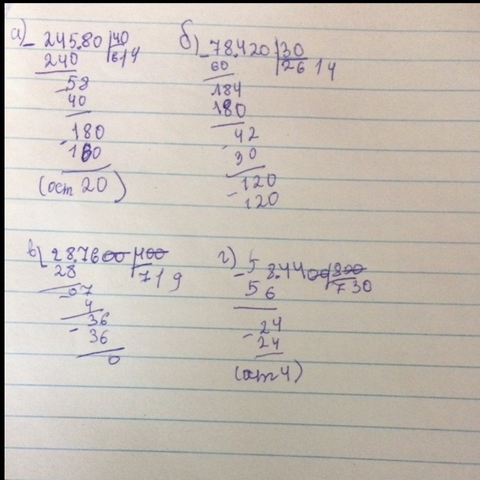 а) 245.80 | 40
240 | 614
58
40
180
160
(ост 20)
б) 78.420 | 30
60 | 2614
184
180
42
30
120
120
в) 28.7600 | 400
28 | 719
07
4
36
36
0
г) 58.4400 | 800
56 | 730
24
24
(ост 4)